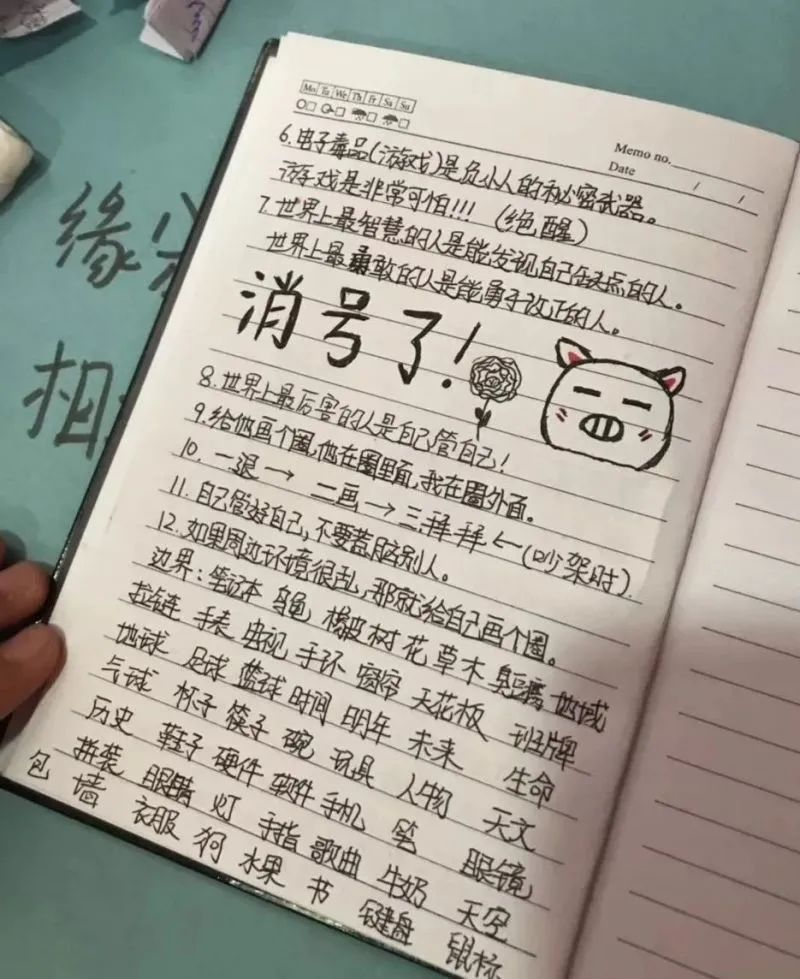 Mo Tu We Th Fr Sa Su
Memo no.
Date / /
6.电子毒品(游戏)是负小人的秘密武器。
游戏是非常可怕!!!(绝醒)
7.世界上最智慧的人是能发现自己缺点的人。
世界上最勇敢的人是能勇于改正的人。
消号了!
8.世界上最厉害的人是自己管自己!
9.给他画个圈,他在圈里面,我在圈外面。
10.一退→二画→三拜拜←(吵架时)
11.自己管好自己,不要惹月这别人。
12.如果周边环境很乱,那就给自己画个圈。
边界:笔记本 乌龟 橡皮 树 花 草 木 臭豆腐 地域
拉链 手表 电视 手环 窗帘 天花板 班牌
地球 足球 篮球 时间 明年 未来 生命
气球 杯子 筷子 碗 玩具 人物 天文
历史 鞋子 硬件 软件 手机 笔 眼镜
拼装 眼睛 灯 手指 歌曲 牛奶 天空
包 墙 衣服 狗 水果 书 键盘 鼠标
缘
相